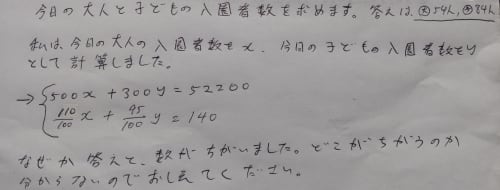 今日の大人と子どもの入園者数を求めます。答えは、大54人,子84人
私は、今日の大人の入園者数をx、今日の子どもの入園者数をy
として計算しました。
→{500x + 300y = 52200
110/100 x + 95/100 y = 140
なぜか答えと、数がちがいました。どこがちがうのか
分からないのでおしえてください。